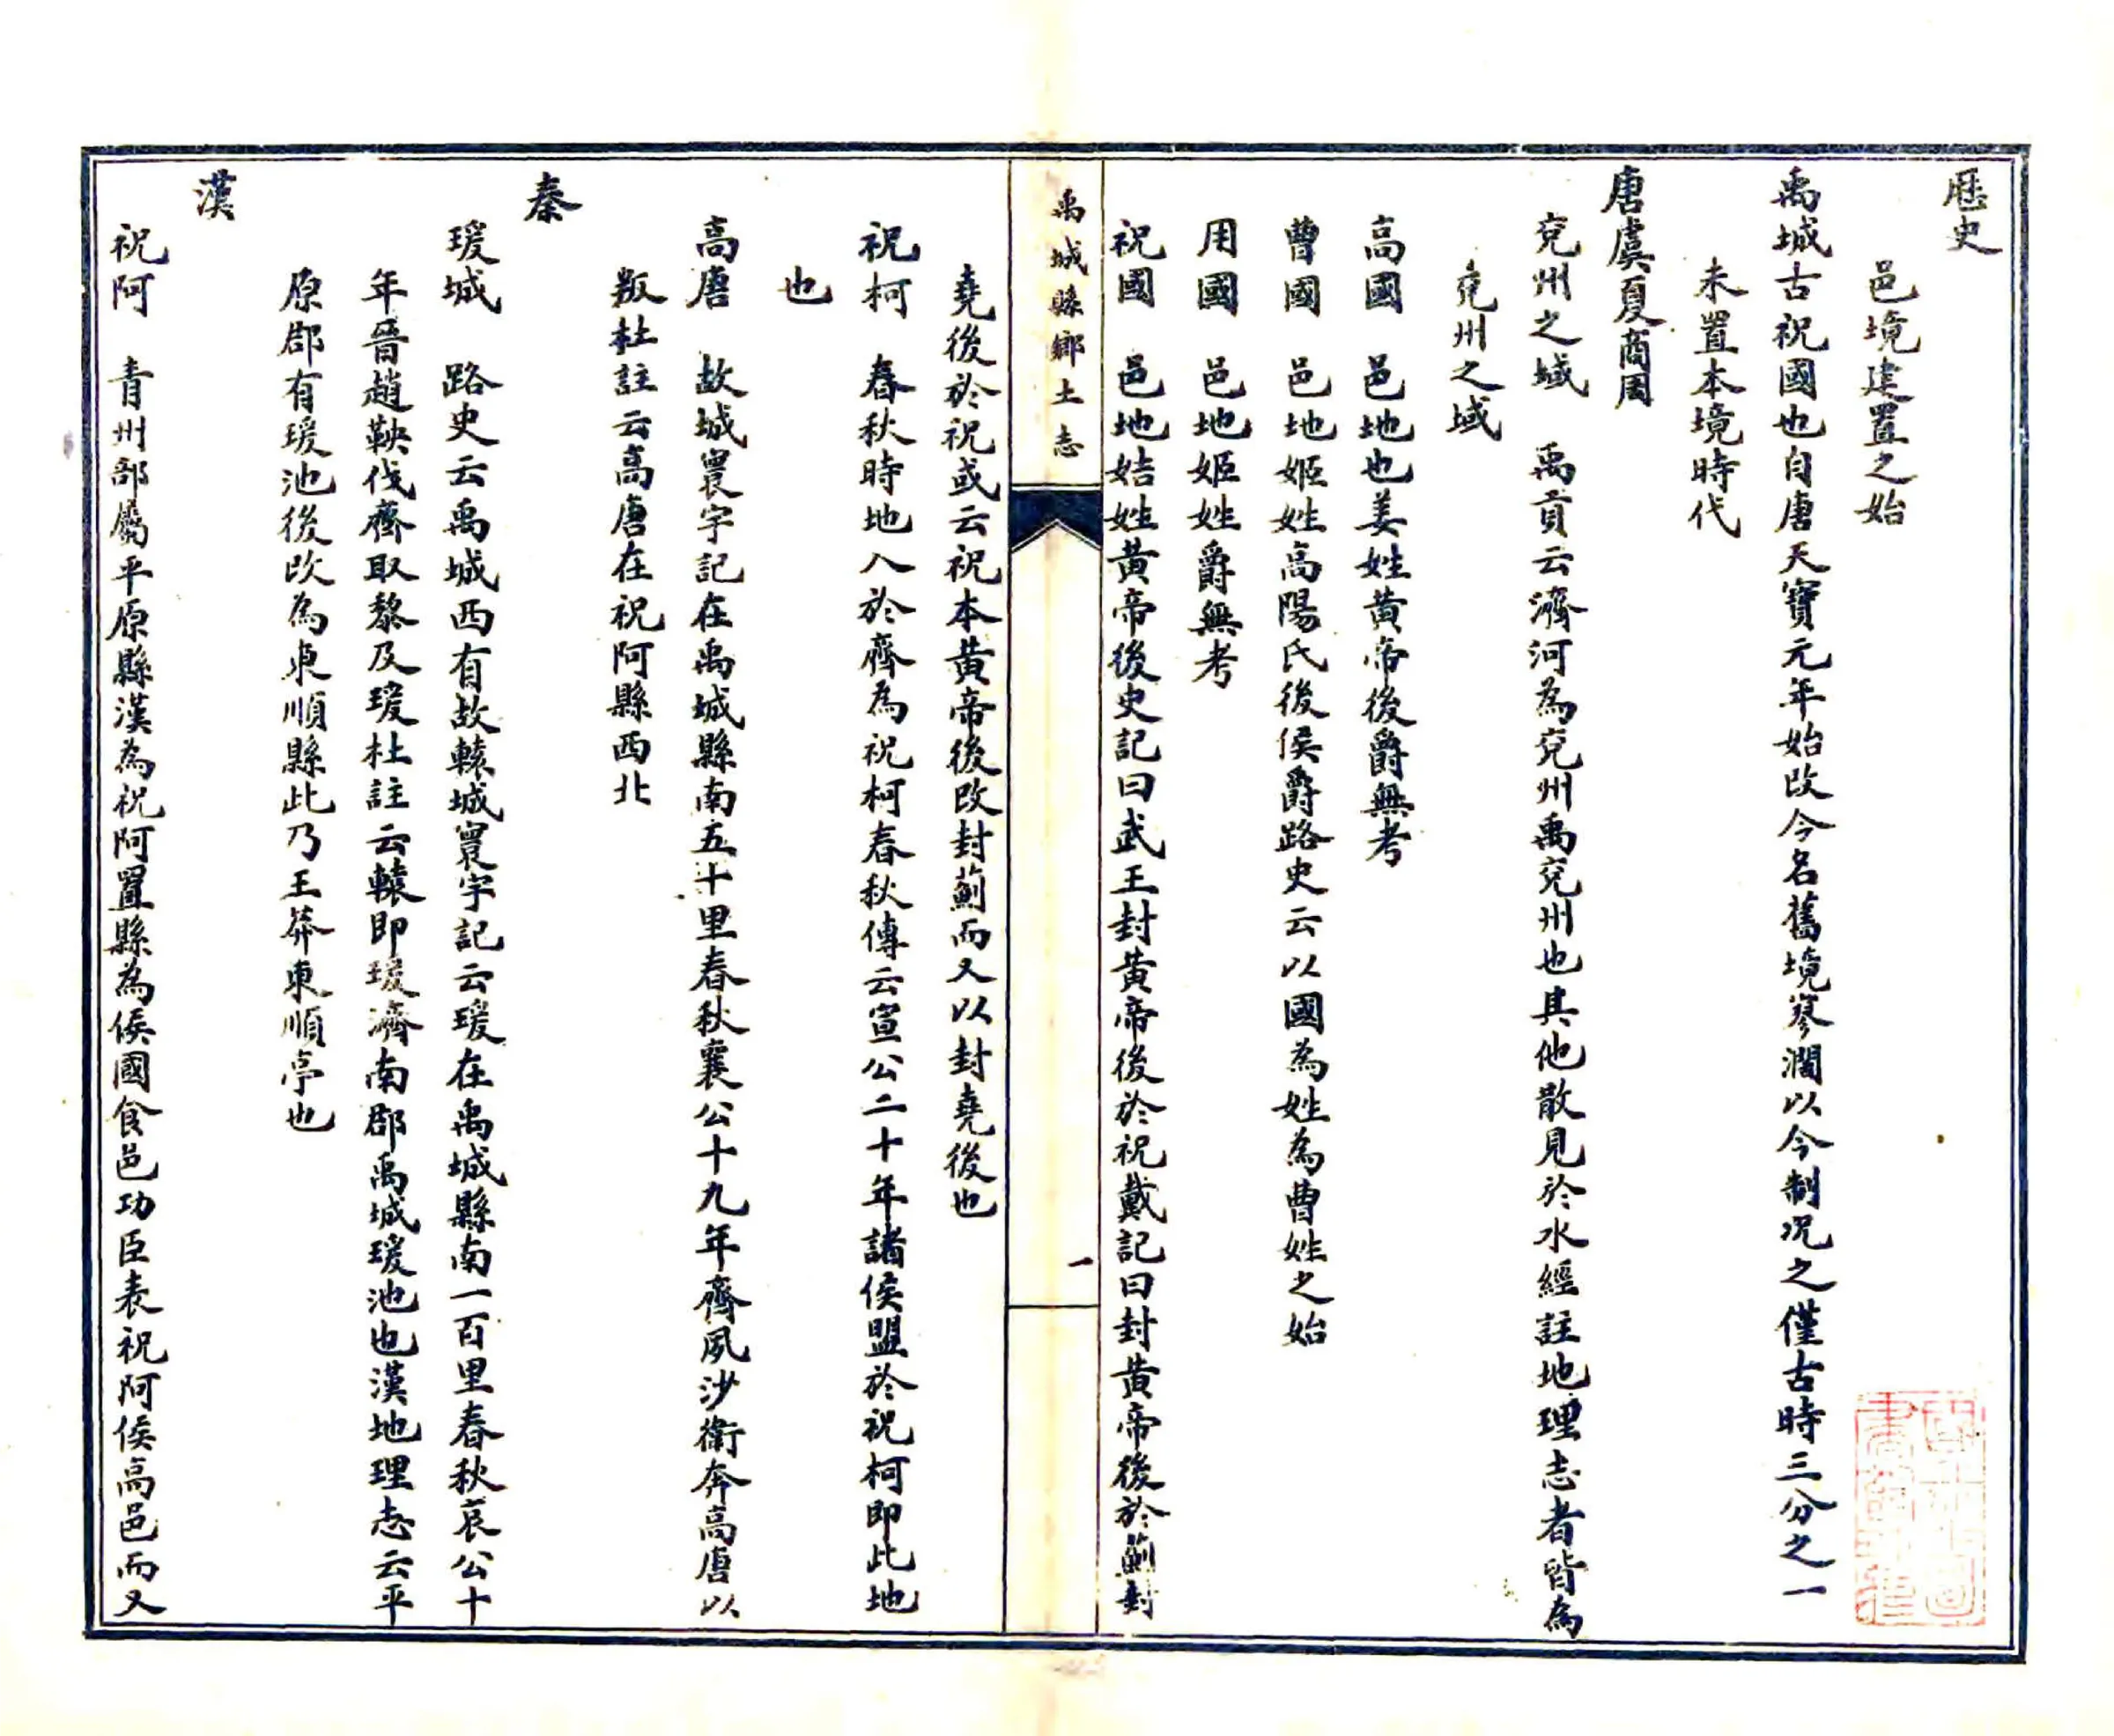 歷史
邑境建置之始
禹城古祝國也自唐天寶元年始改今名舊境寥濶以今制况之僅古時三分之一
未置本境時代
唐虞夏商周
兗州之域　禹貢云濟河為兗州禹兗州也其他散見於水經註地理志者皆為
兗州之域
高國　邑地也姜姓黄帝後爵無考
曹國　邑地姬姓高陽氏後侯爵路史云以國為姓為曹姓之始
用國　邑地姬姓爵無考
祝國　邑地姞姓黄帝後史記曰武王封黄帝後於祝戴記曰封黄帝後於薊封
禹城縣鄉土志
一
堯後於祝或云祝本黄帝後改封薊而又以封堯後也
祝柯　春秋時地入於齊為祝柯春秋傳云宣公二十年諸侯盟於祝柯即此地
也
高唐　故城寰宇記在禹城縣南五十里春秋襄公十九年齊夙沙衛奔高唐以
叛杜註云高唐在祝阿縣西北
秦
瑗城　路史云禹城西有故轅城寰宇記云瑗在禹城縣南一百里春秋哀公十
年晉趙鞅伐齊取黎及瑗杜註云轅即瑗濟南郡禹城瑗池也漢地理志云平
原郡有瑗池後改為東順縣此乃王莽東順亭也
漢
祝阿　青州部屬平原縣漢為祝阿置縣為侯國食邑功臣表祝阿侯高邑而又